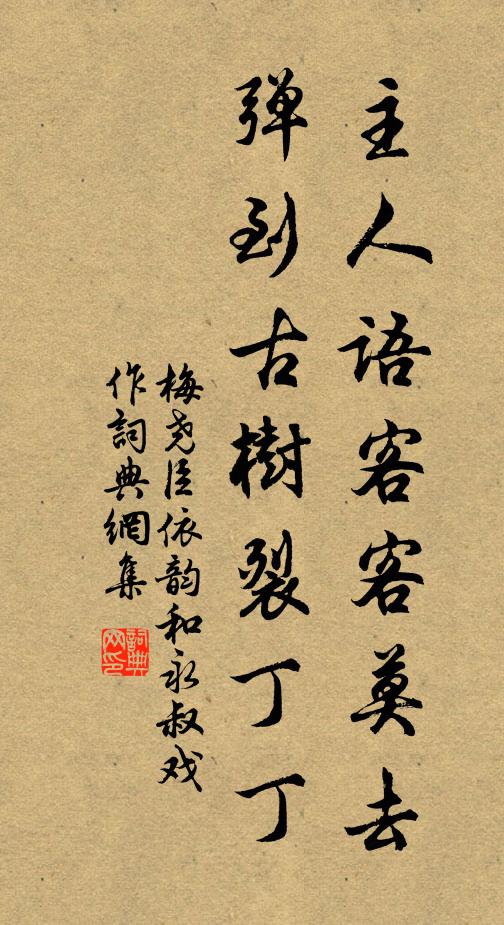 主人語客客莫去
彈到古樹裂丁丁
梅尧臣依韵和永叔戏
作詞典網集
詞典網印